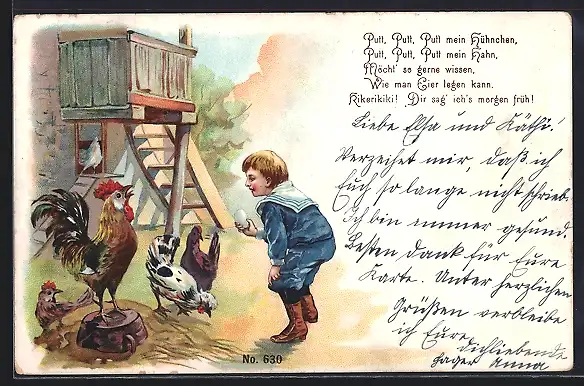 Putt, Putt, Putt mein Hühnchen,
Putt, Putt, Putt mein Hahn,
Möcht' so gerne wissen,
Wie man Eier legen kann.
Kikerikiki! Dir sag' ich's morgen früh!
Liebe Elsa und Käthi!
Verzeihet mir, daß ich
Euch so lange nicht schrieb.
Ich bin immer gesund.
Besten Dank für Eure
Karte. Unter herzlichen
Grüßen verbleibe
ich Eure
dichliebende
Anna
No. 630